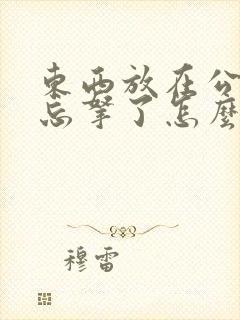 東西放在公
忘拏了怎麼
穆雷